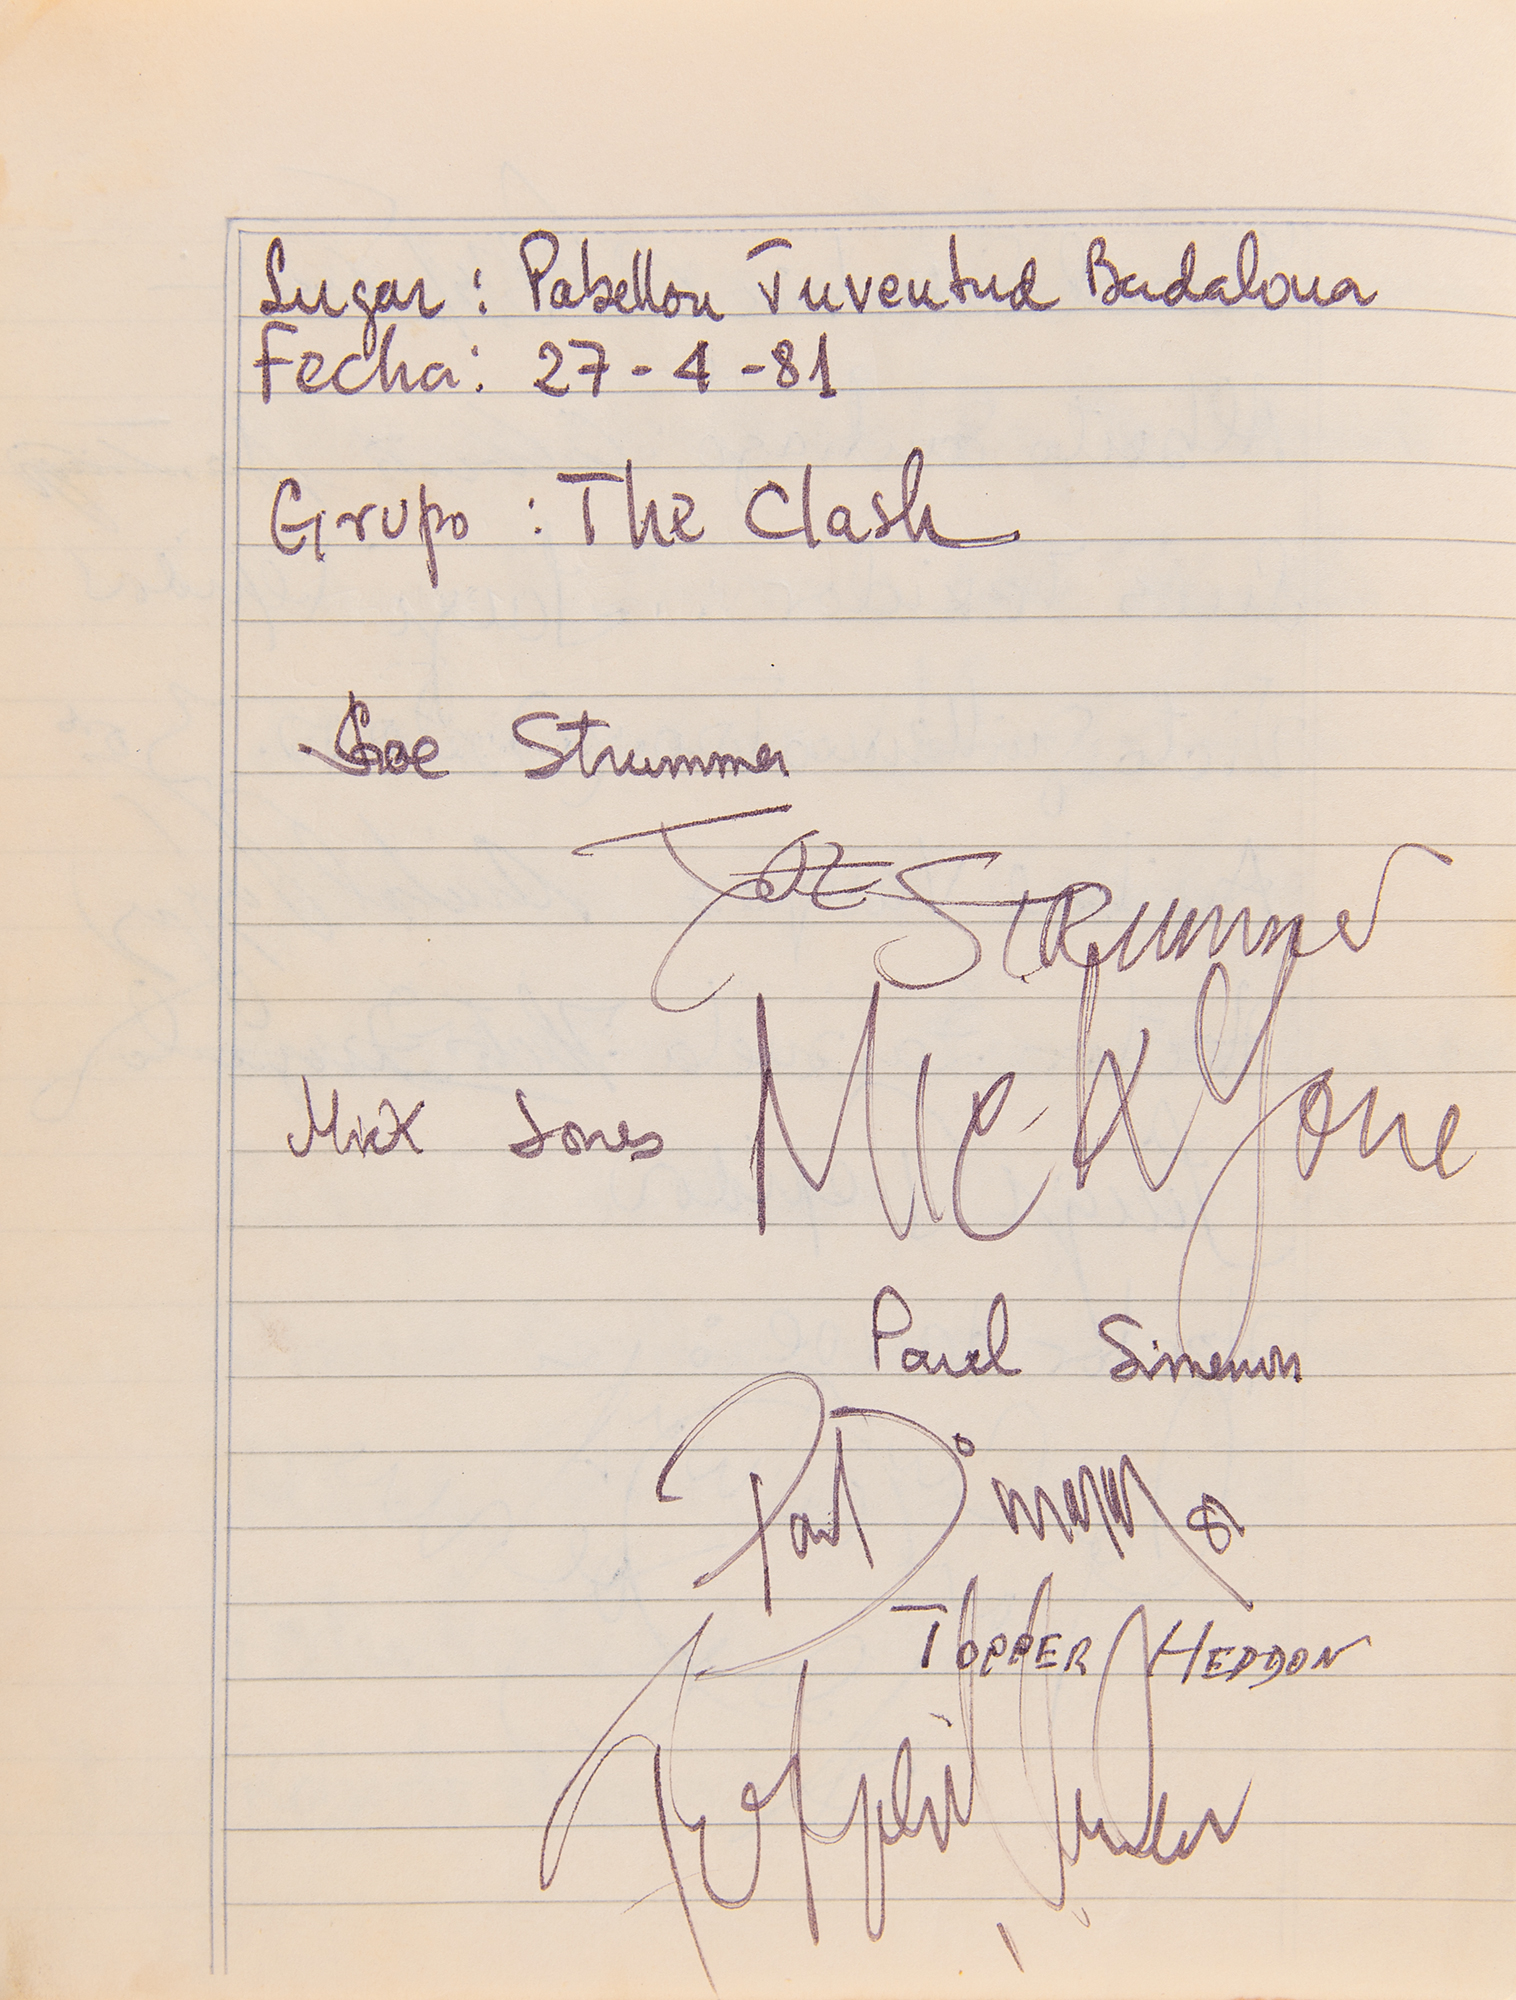 Lugar : Pabellon Juventud Badalona
Fecha: 27-4-81
Grupo : The Clash
Joe Strummer
JOE STRummer
Mick Jones
Mick Jone
Paul Simenon
Paul Simenon 81
TOPPER HEDDON
Topper